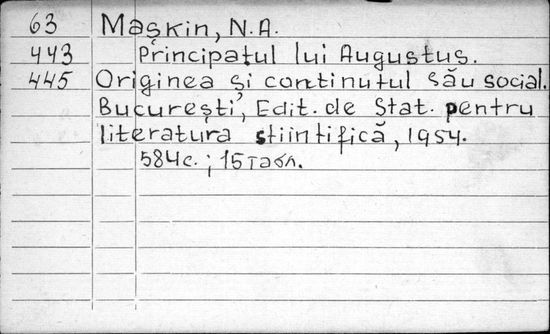 63 Mașkin, N.A.
443 Principatul lui Augustus.
445 Originea și continutul său social.
București, Edit. de Stat. pentru
literatura stiintifică, 1954.
584c.; 15 табл.